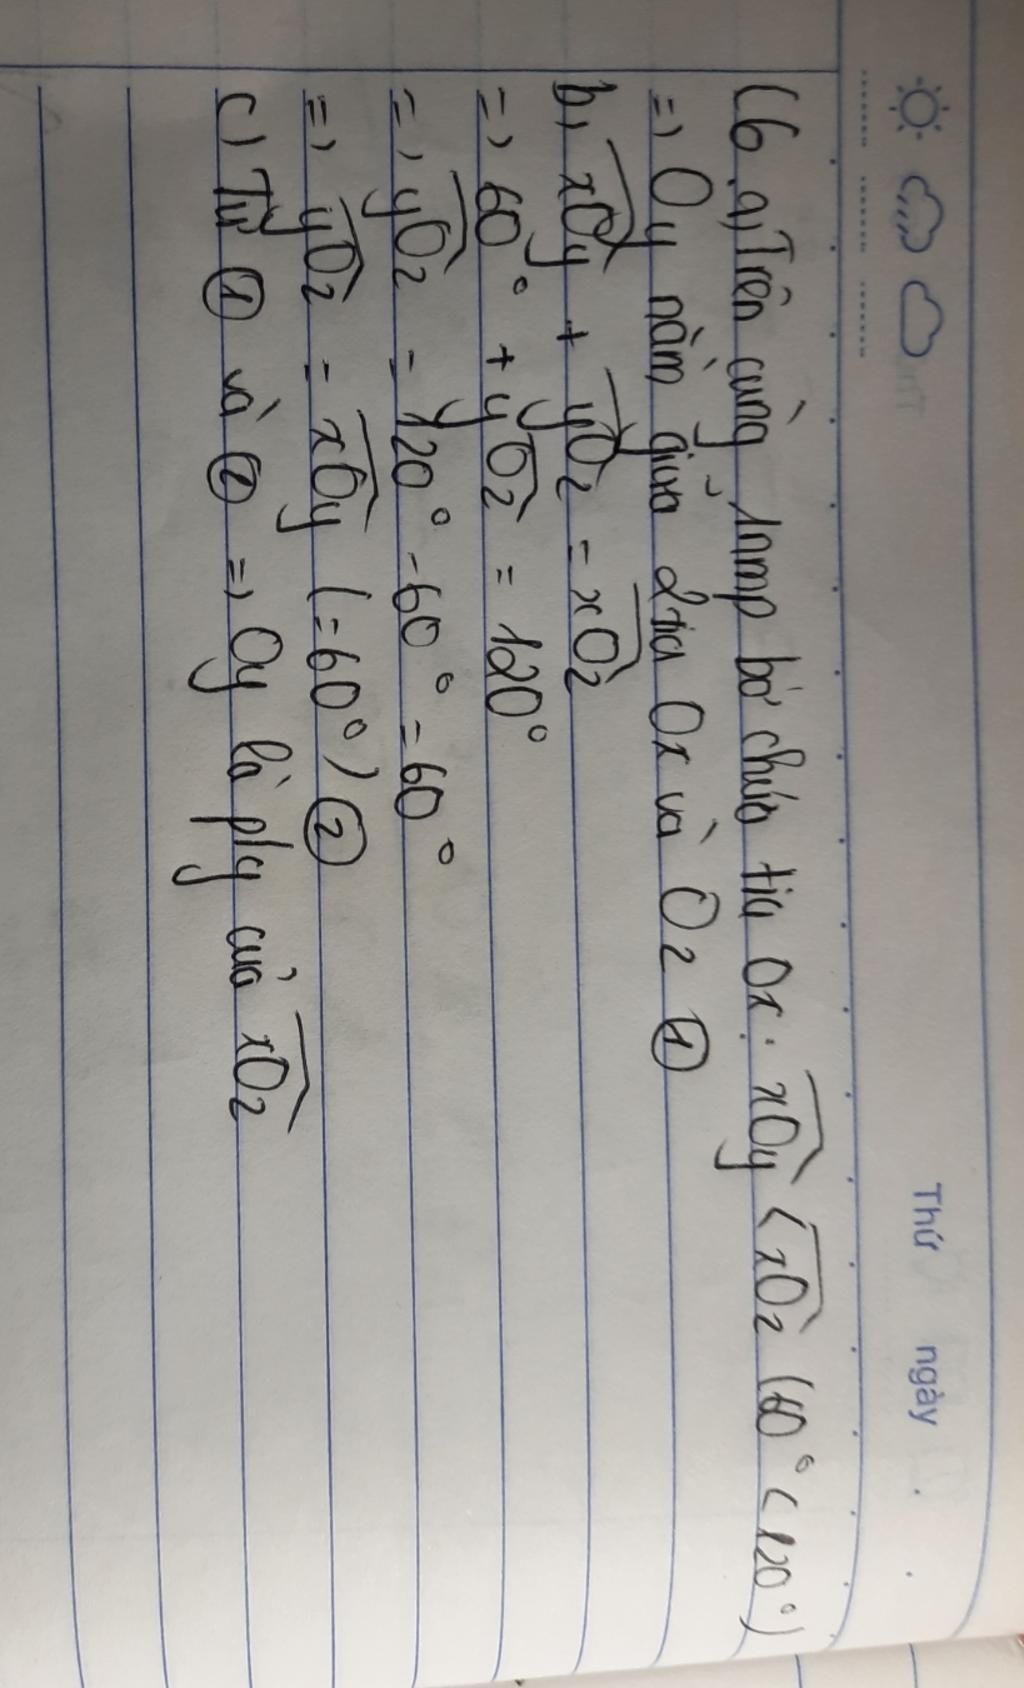 Thứ ngày
C6 a, Trên cùng 1nmp bờ chứa tia Ox: xOy < xOz (60° < 120°)
=> Oy nằm giữa 2 tia Ox và Oz ①
b, xOy + yOz = xOz
=> 60° + yOz = 120°
=> yOz = 120° - 60° = 60°
=> yOz = xOy (= 60°) ②
c, Từ ① và ② => Oy là plg của xOz